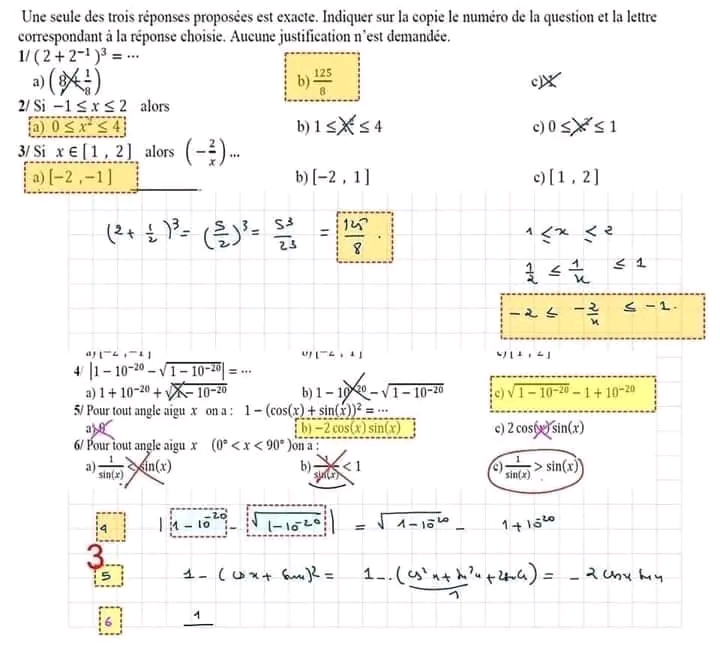 Une seule des trois réponses proposées est exacte. Indiquer sur la copie le numéro de la question et la lettre
correspondant à la réponse choisie. Aucune justification n'est demandée.
1/ (2 + 2⁻¹)³ = ⋯
a) (8 + 1/8) b) 125/8 c)
2/ Si −1 ≤ x ≤ 2 alors
a) 0 ≤ x² ≤ 4 b) 1 ≤ x² ≤ 4 c) 0 ≤ x² ≤ 1
3/ Si x ∈ [1 , 2] alors (−2/x)...
a) [−2 , −1] b) [−2 , 1] c) [1 , 2]
(2 + 1/2)³ = (5/2)³ = 5³/2³ = 125/8 .
1 ≤ x ≤ 2
1/2 ≤ 1/x ≤ 1
−2 ≤ −2/x ≤ −1.
a) [−2 , −1] b) [−2 , 1] c) [1 , 2]
4/ |1 − 10⁻²⁰ − √(1 − 10⁻²⁰)| = ⋯
a) 1 + 10⁻²⁰ + √(1 − 10⁻²⁰) b) 1 − 10⁻²⁰ − √(1 − 10⁻²⁰) c) √(1 − 10⁻²⁰) − 1 + 10⁻²⁰
5/ Pour tout angle aigu x on a : 1 − (cos(x) + sin(x))² = ⋯
a) 0 b) −2 cos(x) sin(x) c) 2 cos(x) sin(x)
6/ Pour tout angle aigu x (0° < x < 90°) on a :
a) 1/sin(x) < sin(x) b) 1/sin(x) < 1 c) 1/sin(x) > sin(x)
4 | 1 − 10⁻²⁰ − √(1−10⁻²⁰) | = √(1−10⁻²⁰) − 1 + 10⁻²⁰
3
5 1 − (cos x + sin x)² = 1 − (cos² x + sin² x + 2 ) = − 2 cos x sin x
1
6 1